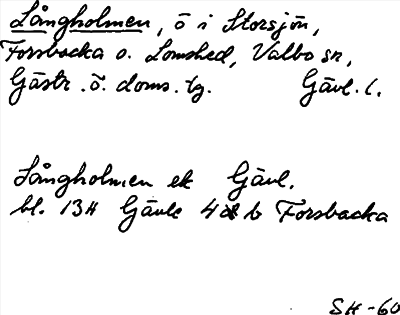 Långholmen, ö i Storsjön,
Forsbacka o. Lomshed, Valbo sn,
Gästr. ö. doms. tg. Gävl. l.
Långholmen ek Gävl.
bl. 13H Gävle 4 b Forsbacka
SH-60